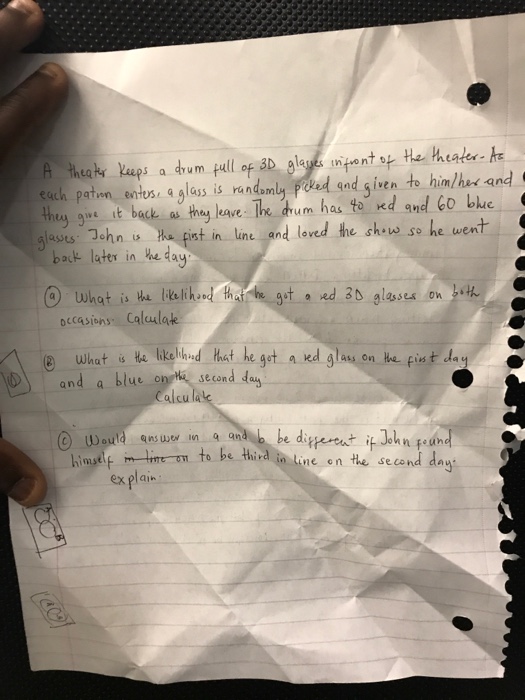 A theater keeps a drum full of 3D glasses infront of the theater. As
each patron enters, a glass is randomly picked and given to him/her and
they give it back as they leave. The drum has 40 red and 60 blue
glasses. John is the first in line and loved the show so he went
back later in the day.
(a) What is the likelihood that he got a red 3D glasses on both
occasions. Calculate
(B) What is the likelihood that he got a red glass on the first day
and a blue on the second day
Calculate
(c) Would answer in a and b be different if John found
himself in line on to be third in line on the second day.
explain.